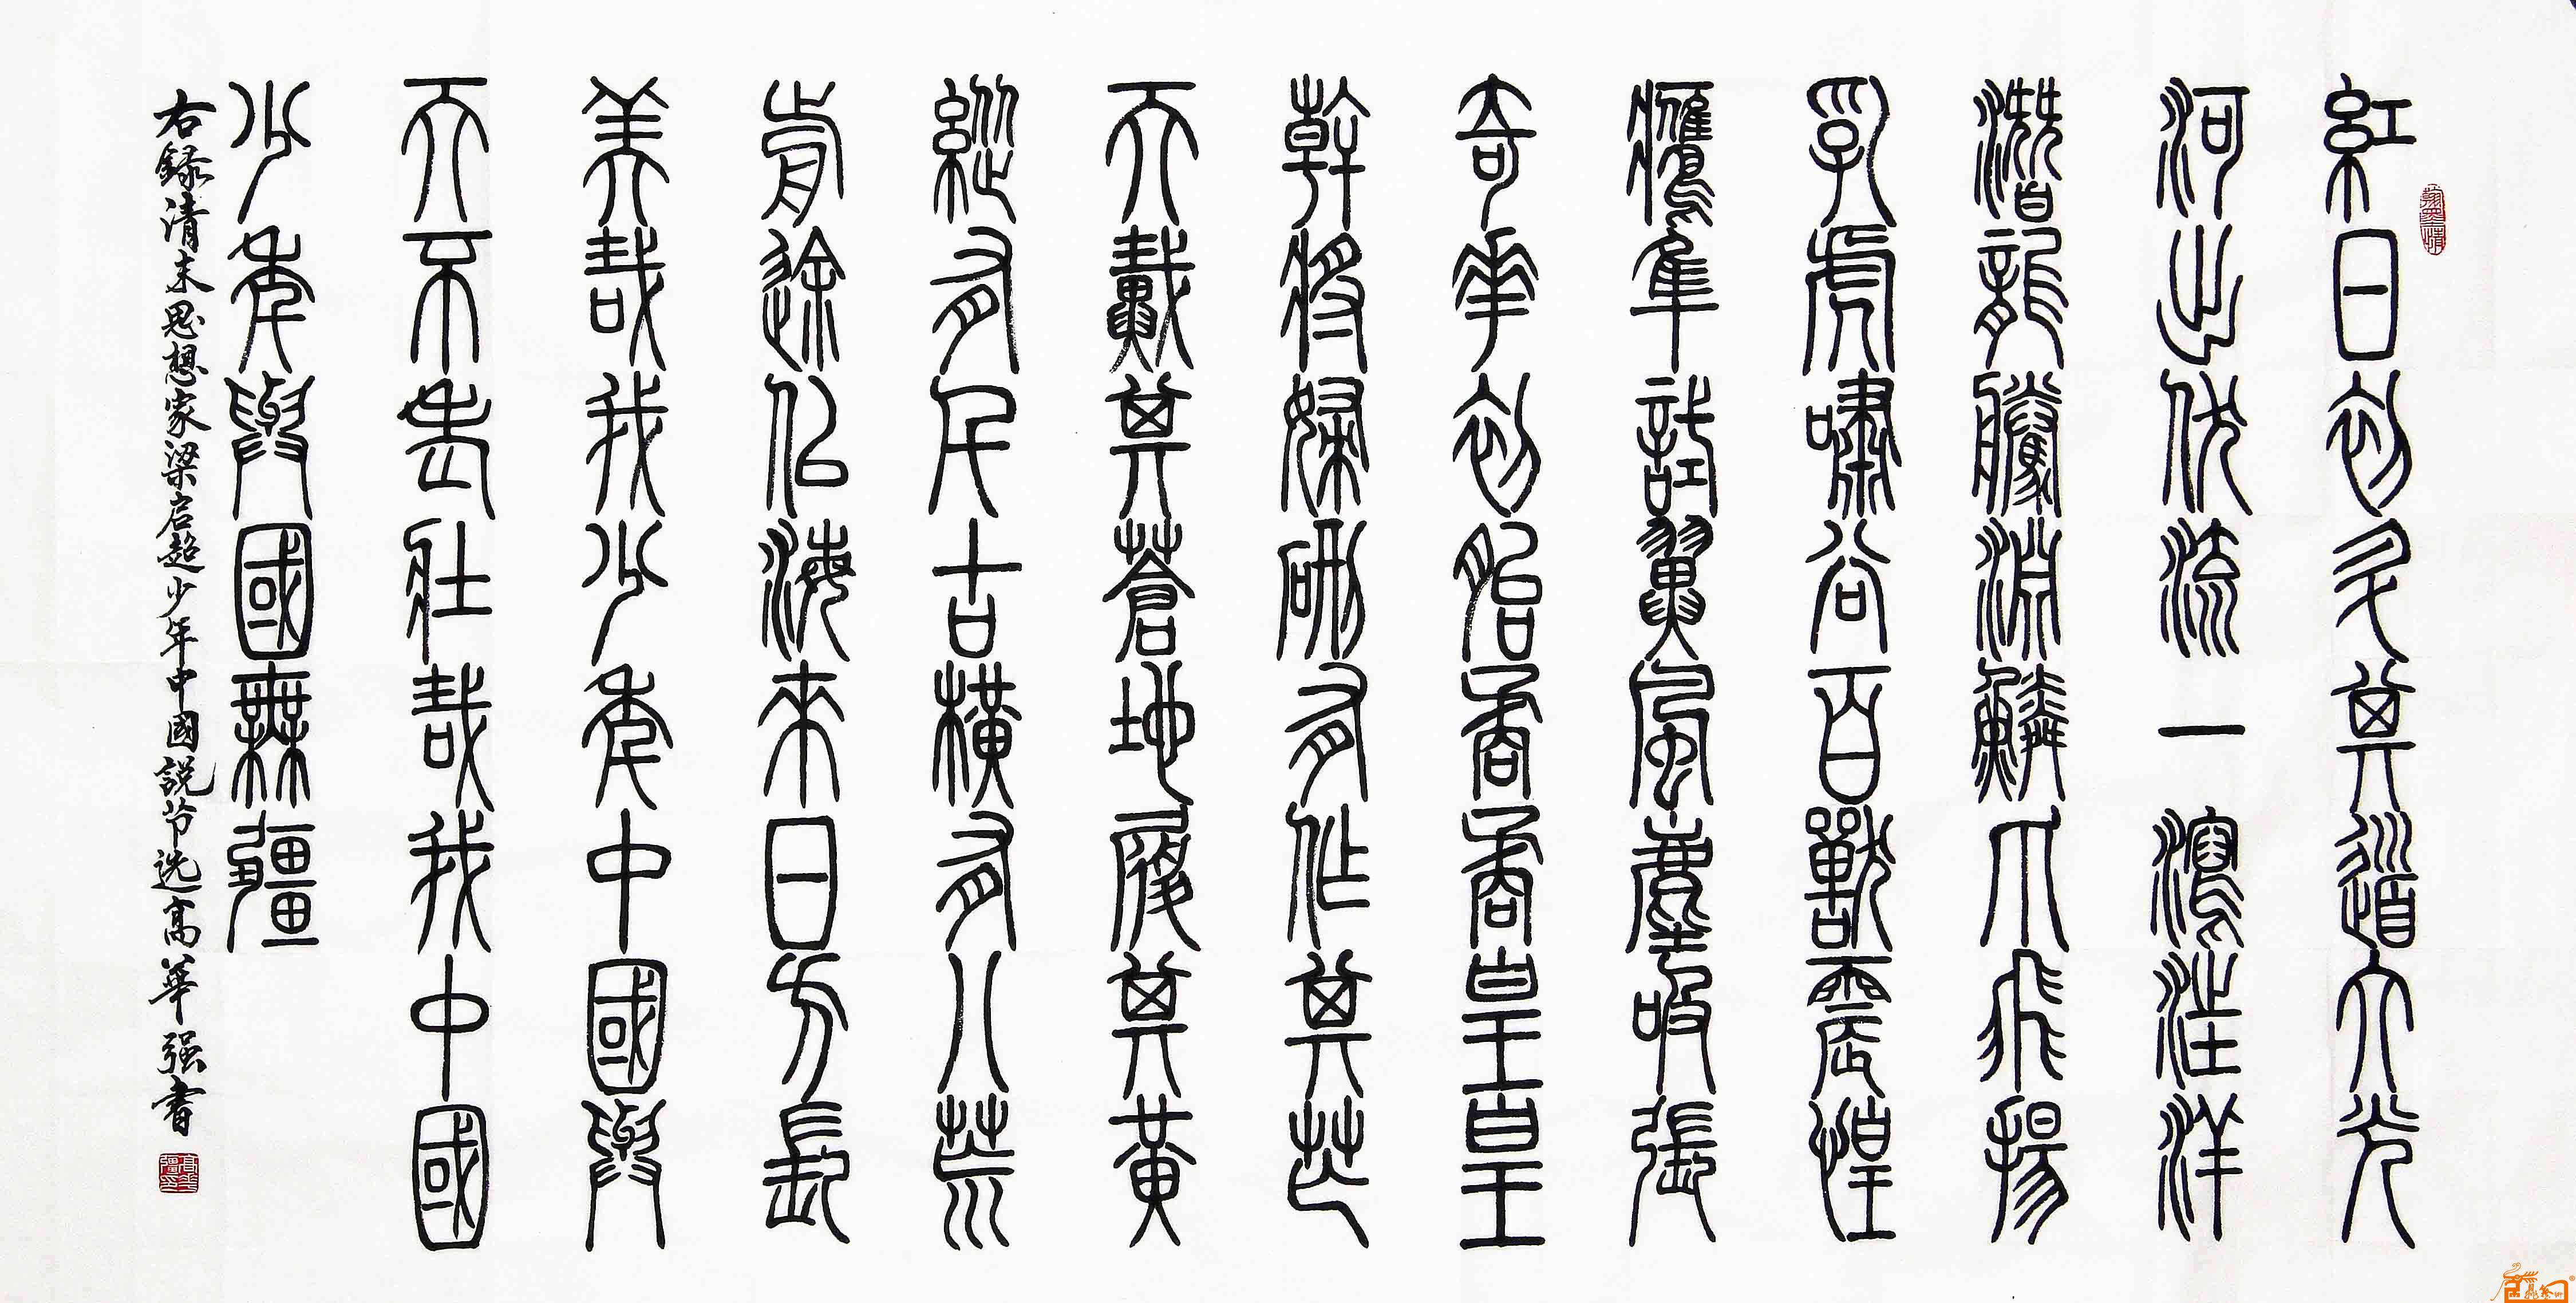 紅日初升其道大光
河出伏流一瀉汪洋
潛龍騰淵鱗爪飛揚
乳虎嘯谷百獸震惶
鷹隼試翼風塵吸張
奇花初胎矞矞皇皇
幹將發硎有作其芒
天戴其蒼地履其黃
縱有千古橫有八荒
前途似海來日方長
美哉我少年中國與
天不老壯哉我中國
少年與國無疆
右錄清末思想家梁启超少年中國說节选高華强書